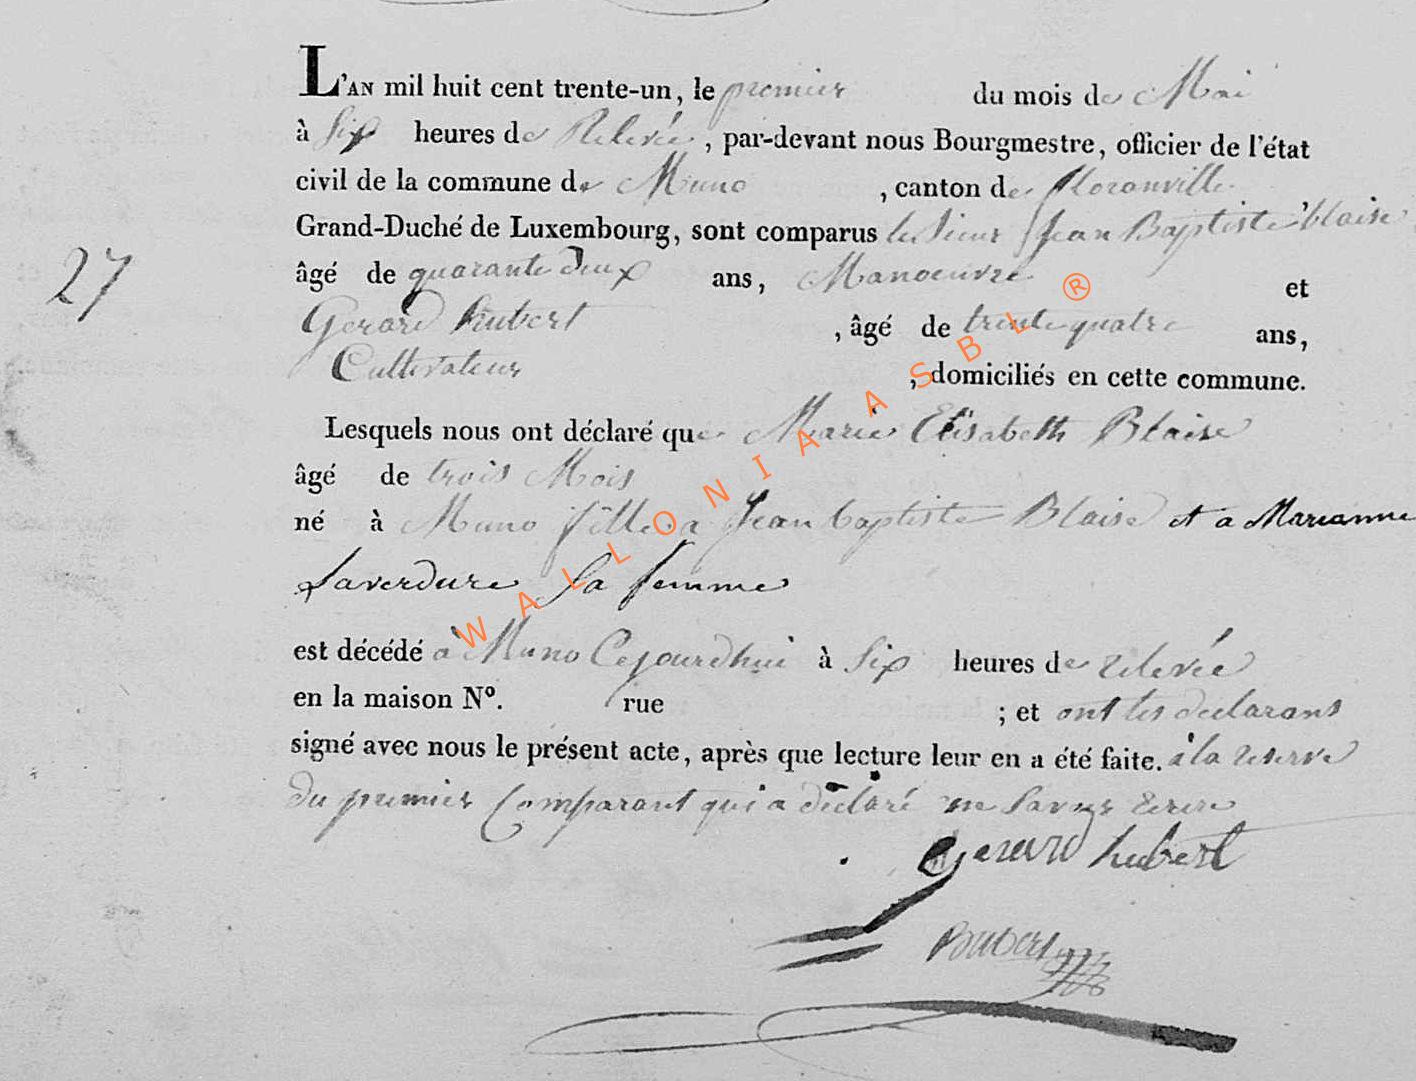 L'AN mil huit cent trente-un, le premier du mois de Mai
à Six heures de Relevée, par-devant nous Bourgmestre, officier de l'état
civil de la commune de Muno, canton de florenville
Grand-Duché de Luxembourg, sont comparus les Sieur Jean Baptiste blaise
27
âgé de quarante deux ans, Manoeuvre et
Gerard hubert, âgé de trente quatre ans,
Cultivateur, domiciliés en cette commune.
Lesquels nous ont déclaré que Marie Elisabeth Blaise
âgé de trois Mois
né à Muno fille a Jean baptiste Blaise et a Marianne
Laverdure Sa femme
est décédé à Muno Cejourdhui à Six heures de relevée
en la maison N°. rue ; et ont les déclarans
signé avec nous le présent acte, après que lecture leur en a été faite. à la reserve
du premier Comparant qui a déclaré ne Savoir Ecrire
Gerard hubert
WALLONIA ASBL ®